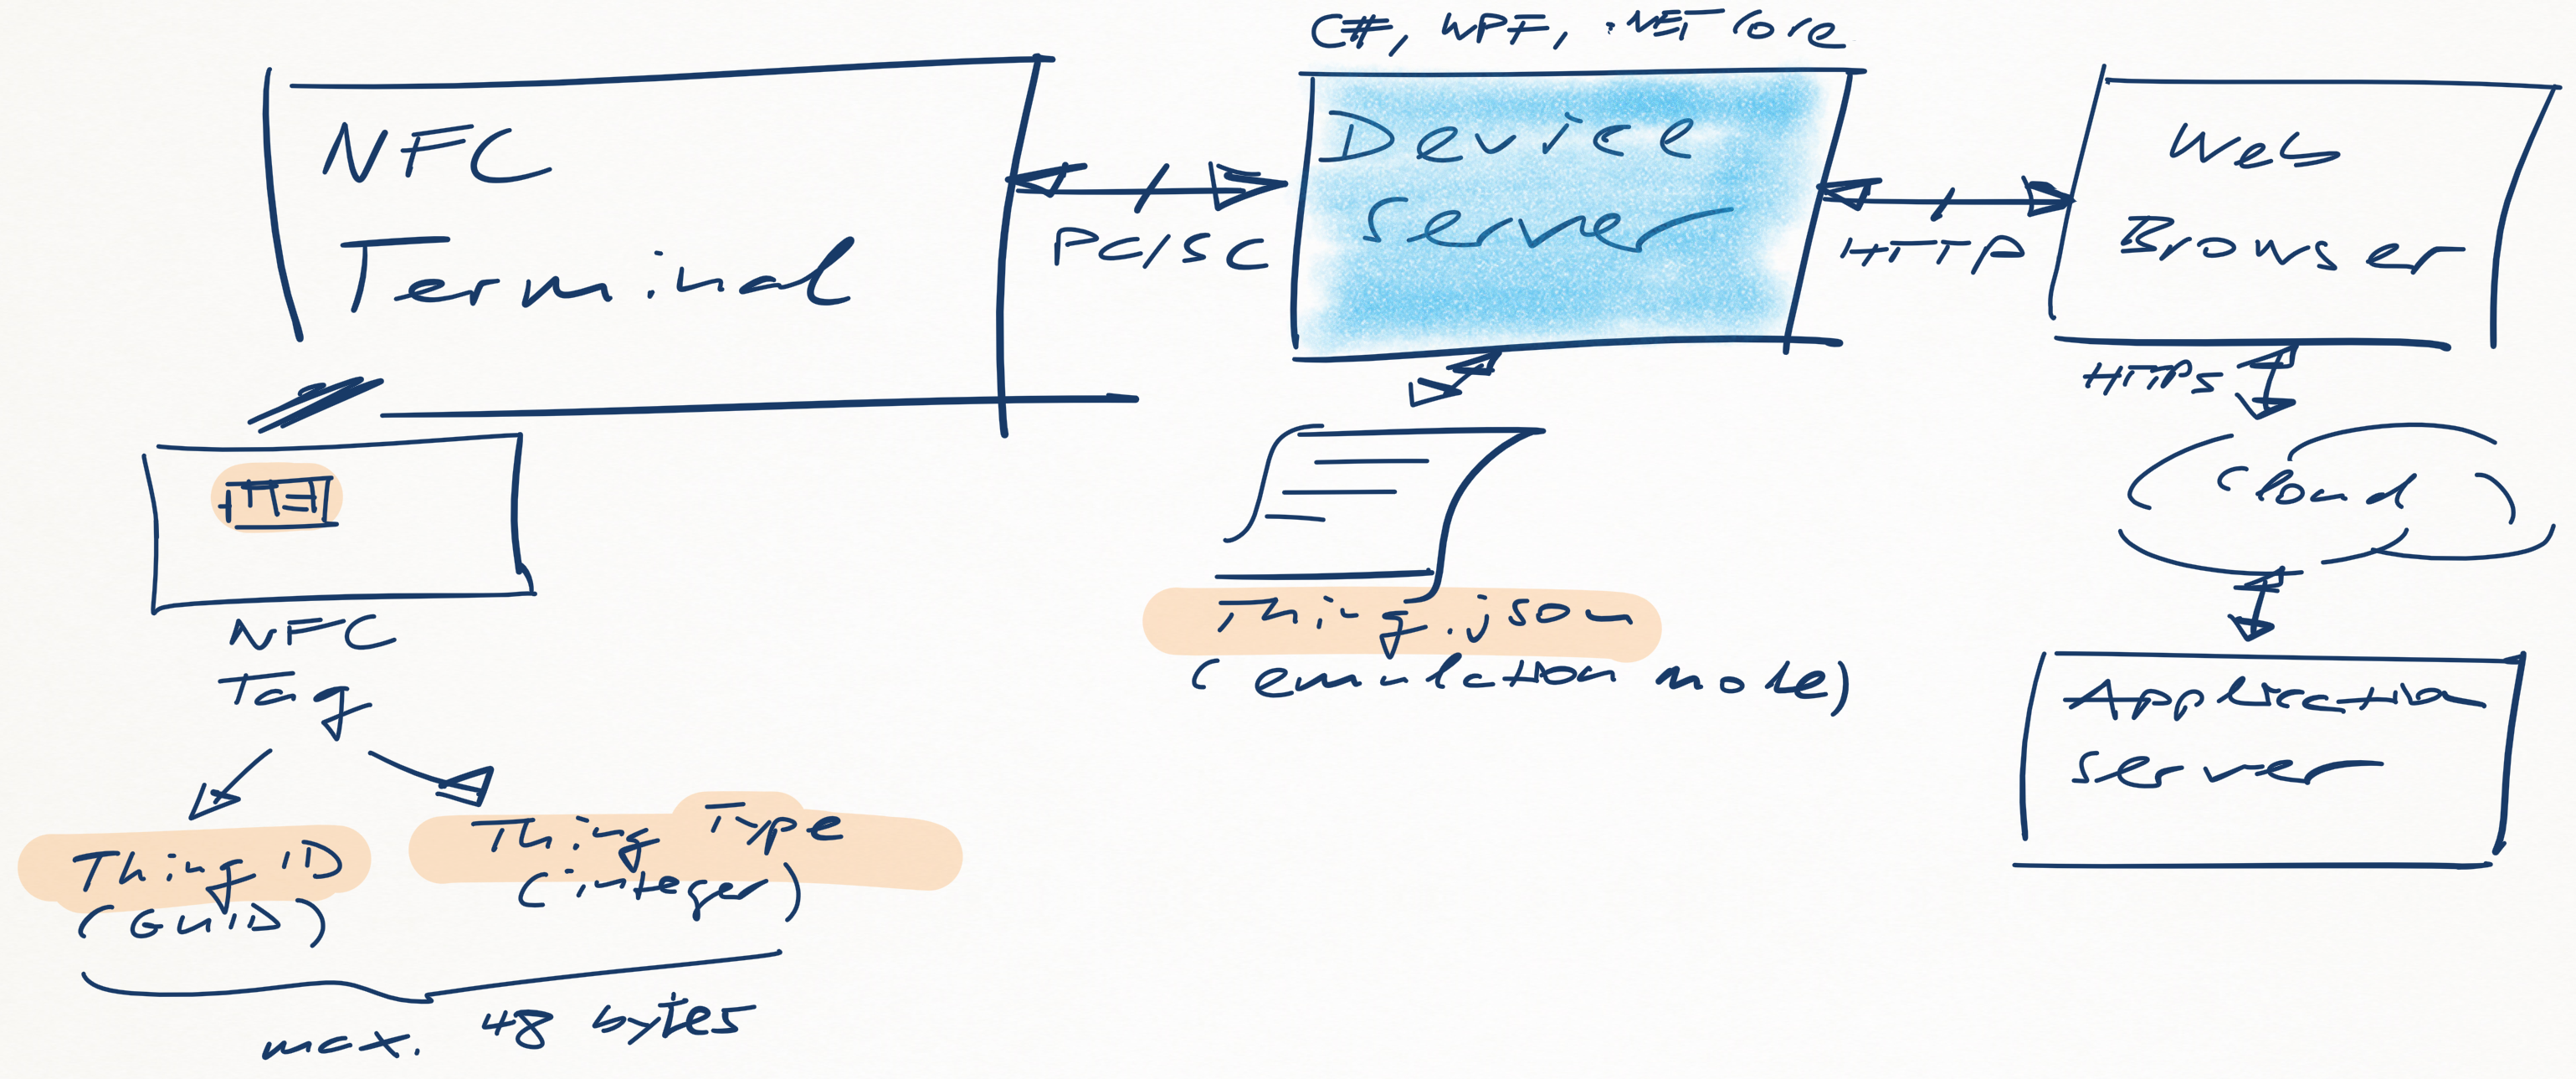 C#, WPF, .NET Core
NFC
Terminal
PC/SC
Device
Server
HTTP
Web
Browser
HTTPS
Cloud
Application
Server
Thing.json
(emulation mode)
NFC
Tag
Thing ID
(GUID)
Thing Type
(integer)
max. 48 bytes